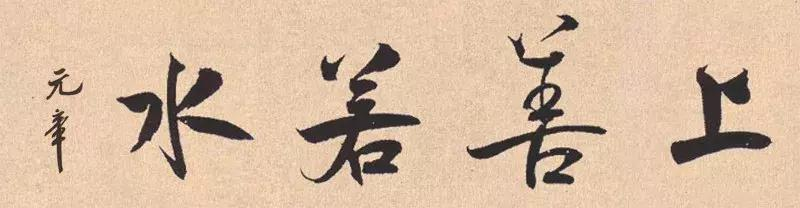 上善若水
元章